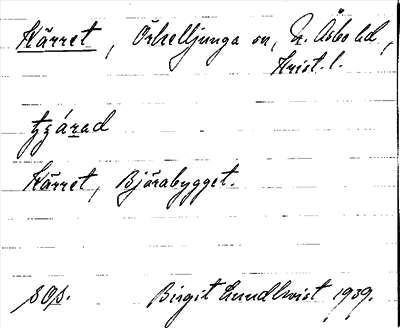 Kärret, Örkelljunga sn, N. Åsbo hd,
Krist. l.
Kärret, Bjärabygget.
SOp. Birgit Lundkvist 1939.